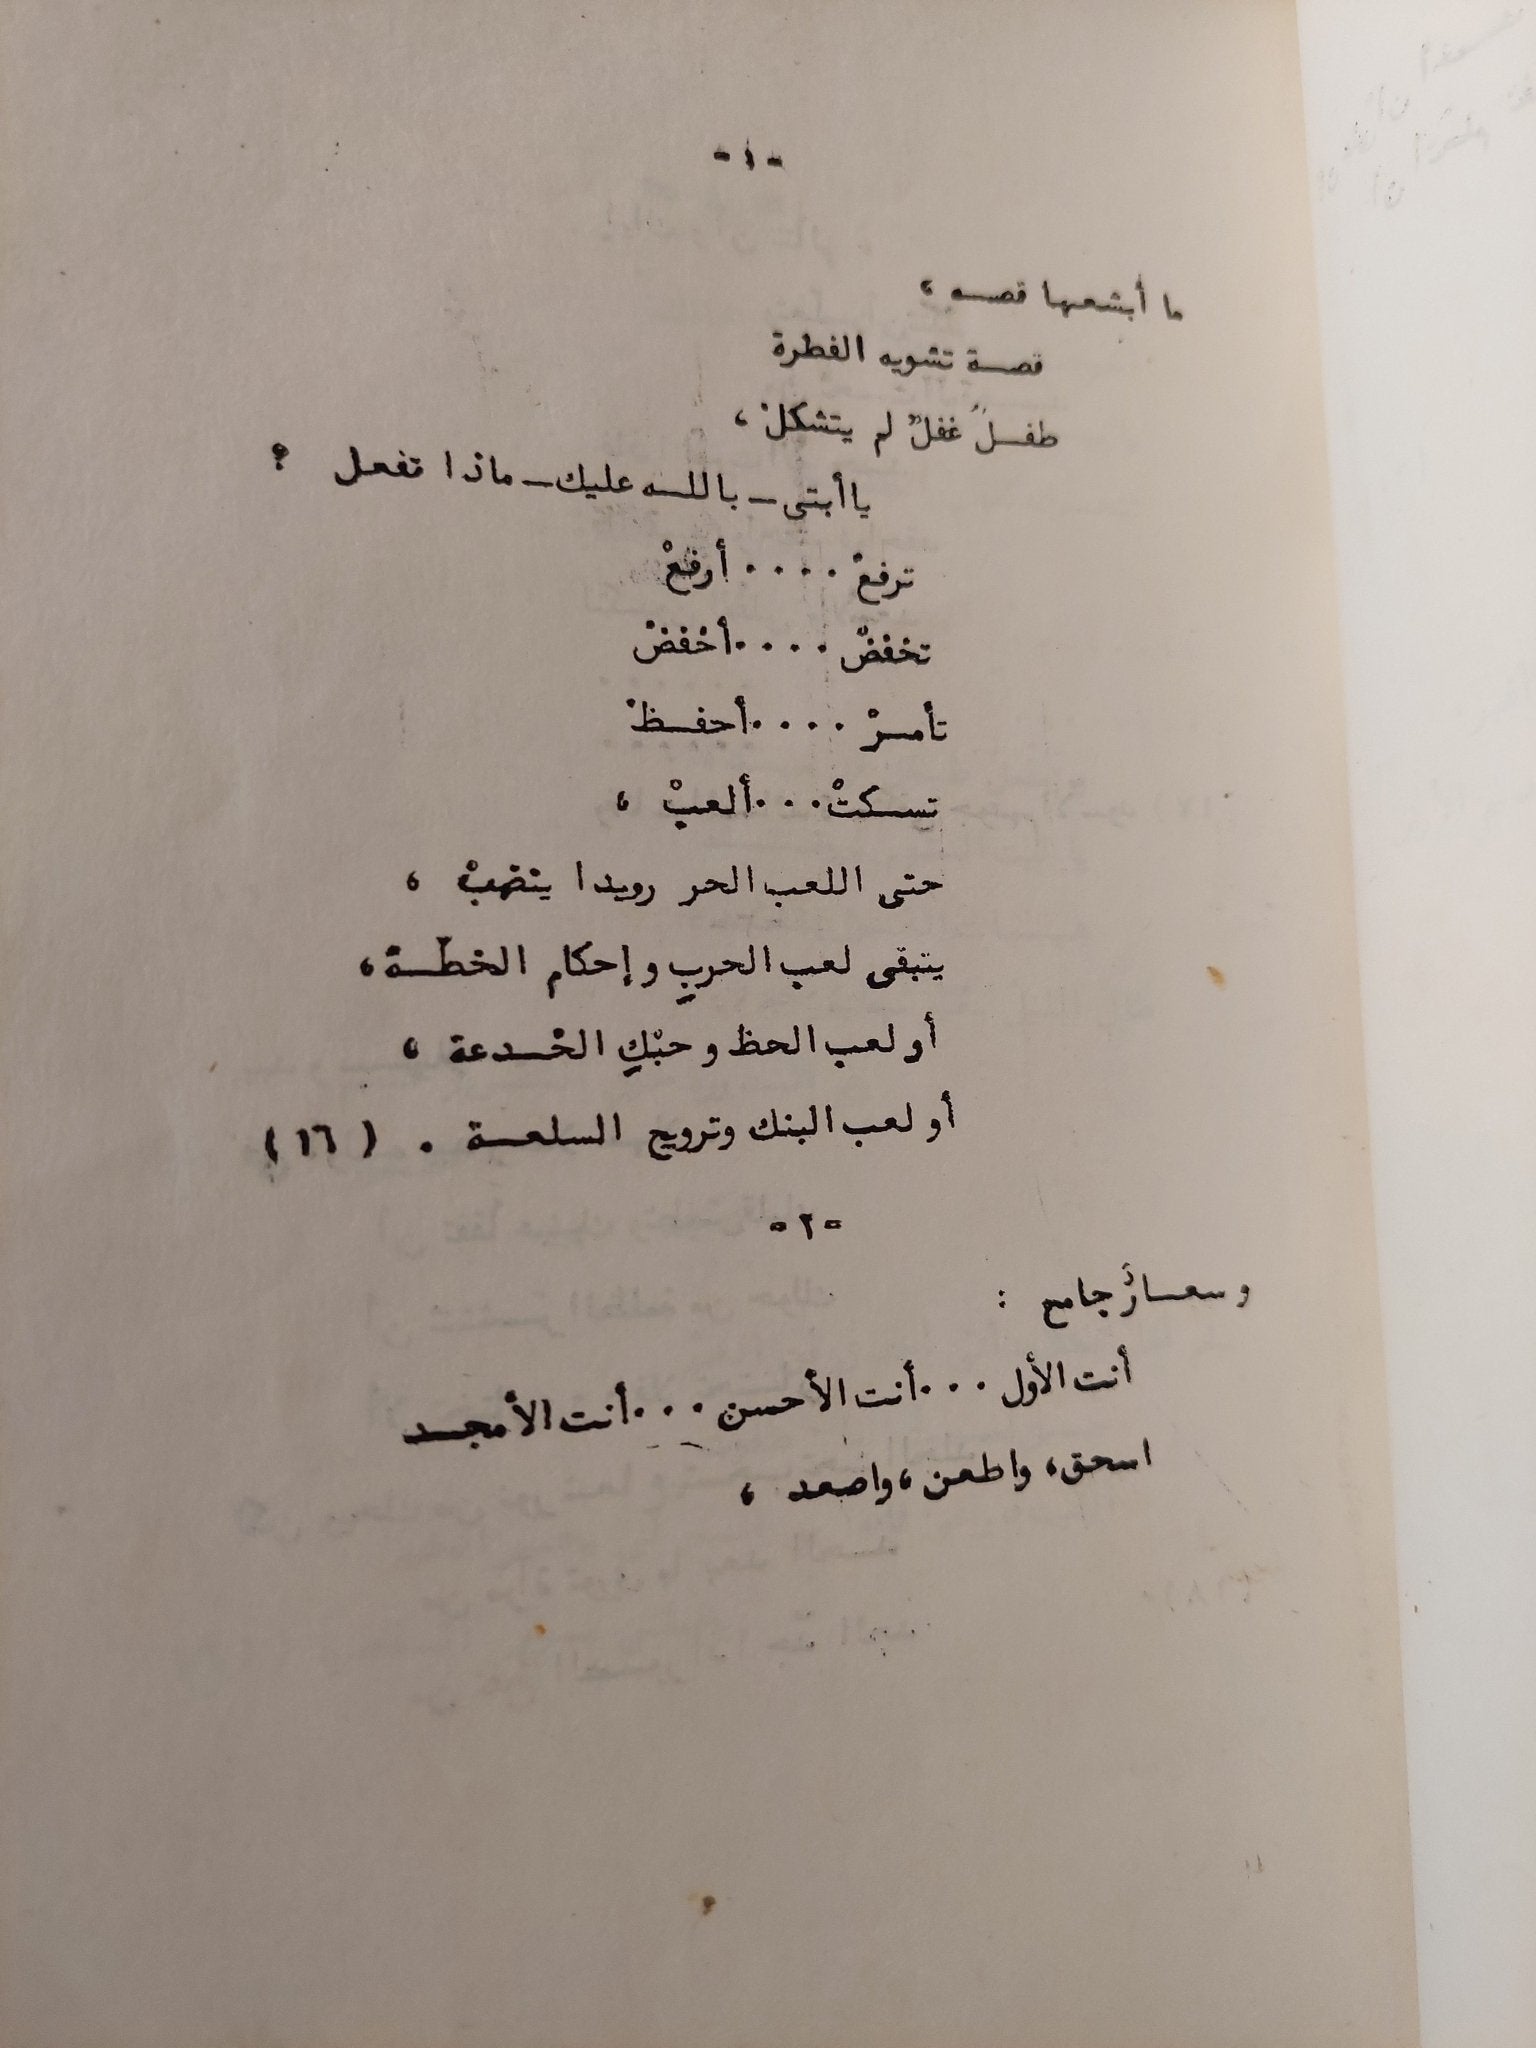 -١-
ما أبشعها قصه ،
قصة تشويه الفطرة
طفلٌ غفلٌ لم يتشكلْ ،
ياأبتى – بالله عليك – ماذا تفعل ؟
ترفعْ .... أرفعْ
تخفضْ .... أخفضْ
تأمرْ .... أحفظْ
تسكتْ ... ألعبْ ،
حتى اللعب الحر رويدا
يتبقى لعب الحربِ وإحكام الخطّة ،
أو لعب الحظ وحبْكِ الخُدعة ،
أو لعب البنك وترويج السلعة . (١٦)
-٢-
وسعارٌ جامع :
أنت الأول ... أنت الأحسن ... أنت الأمجد
اسحق ، واطعن ، واصعد ،